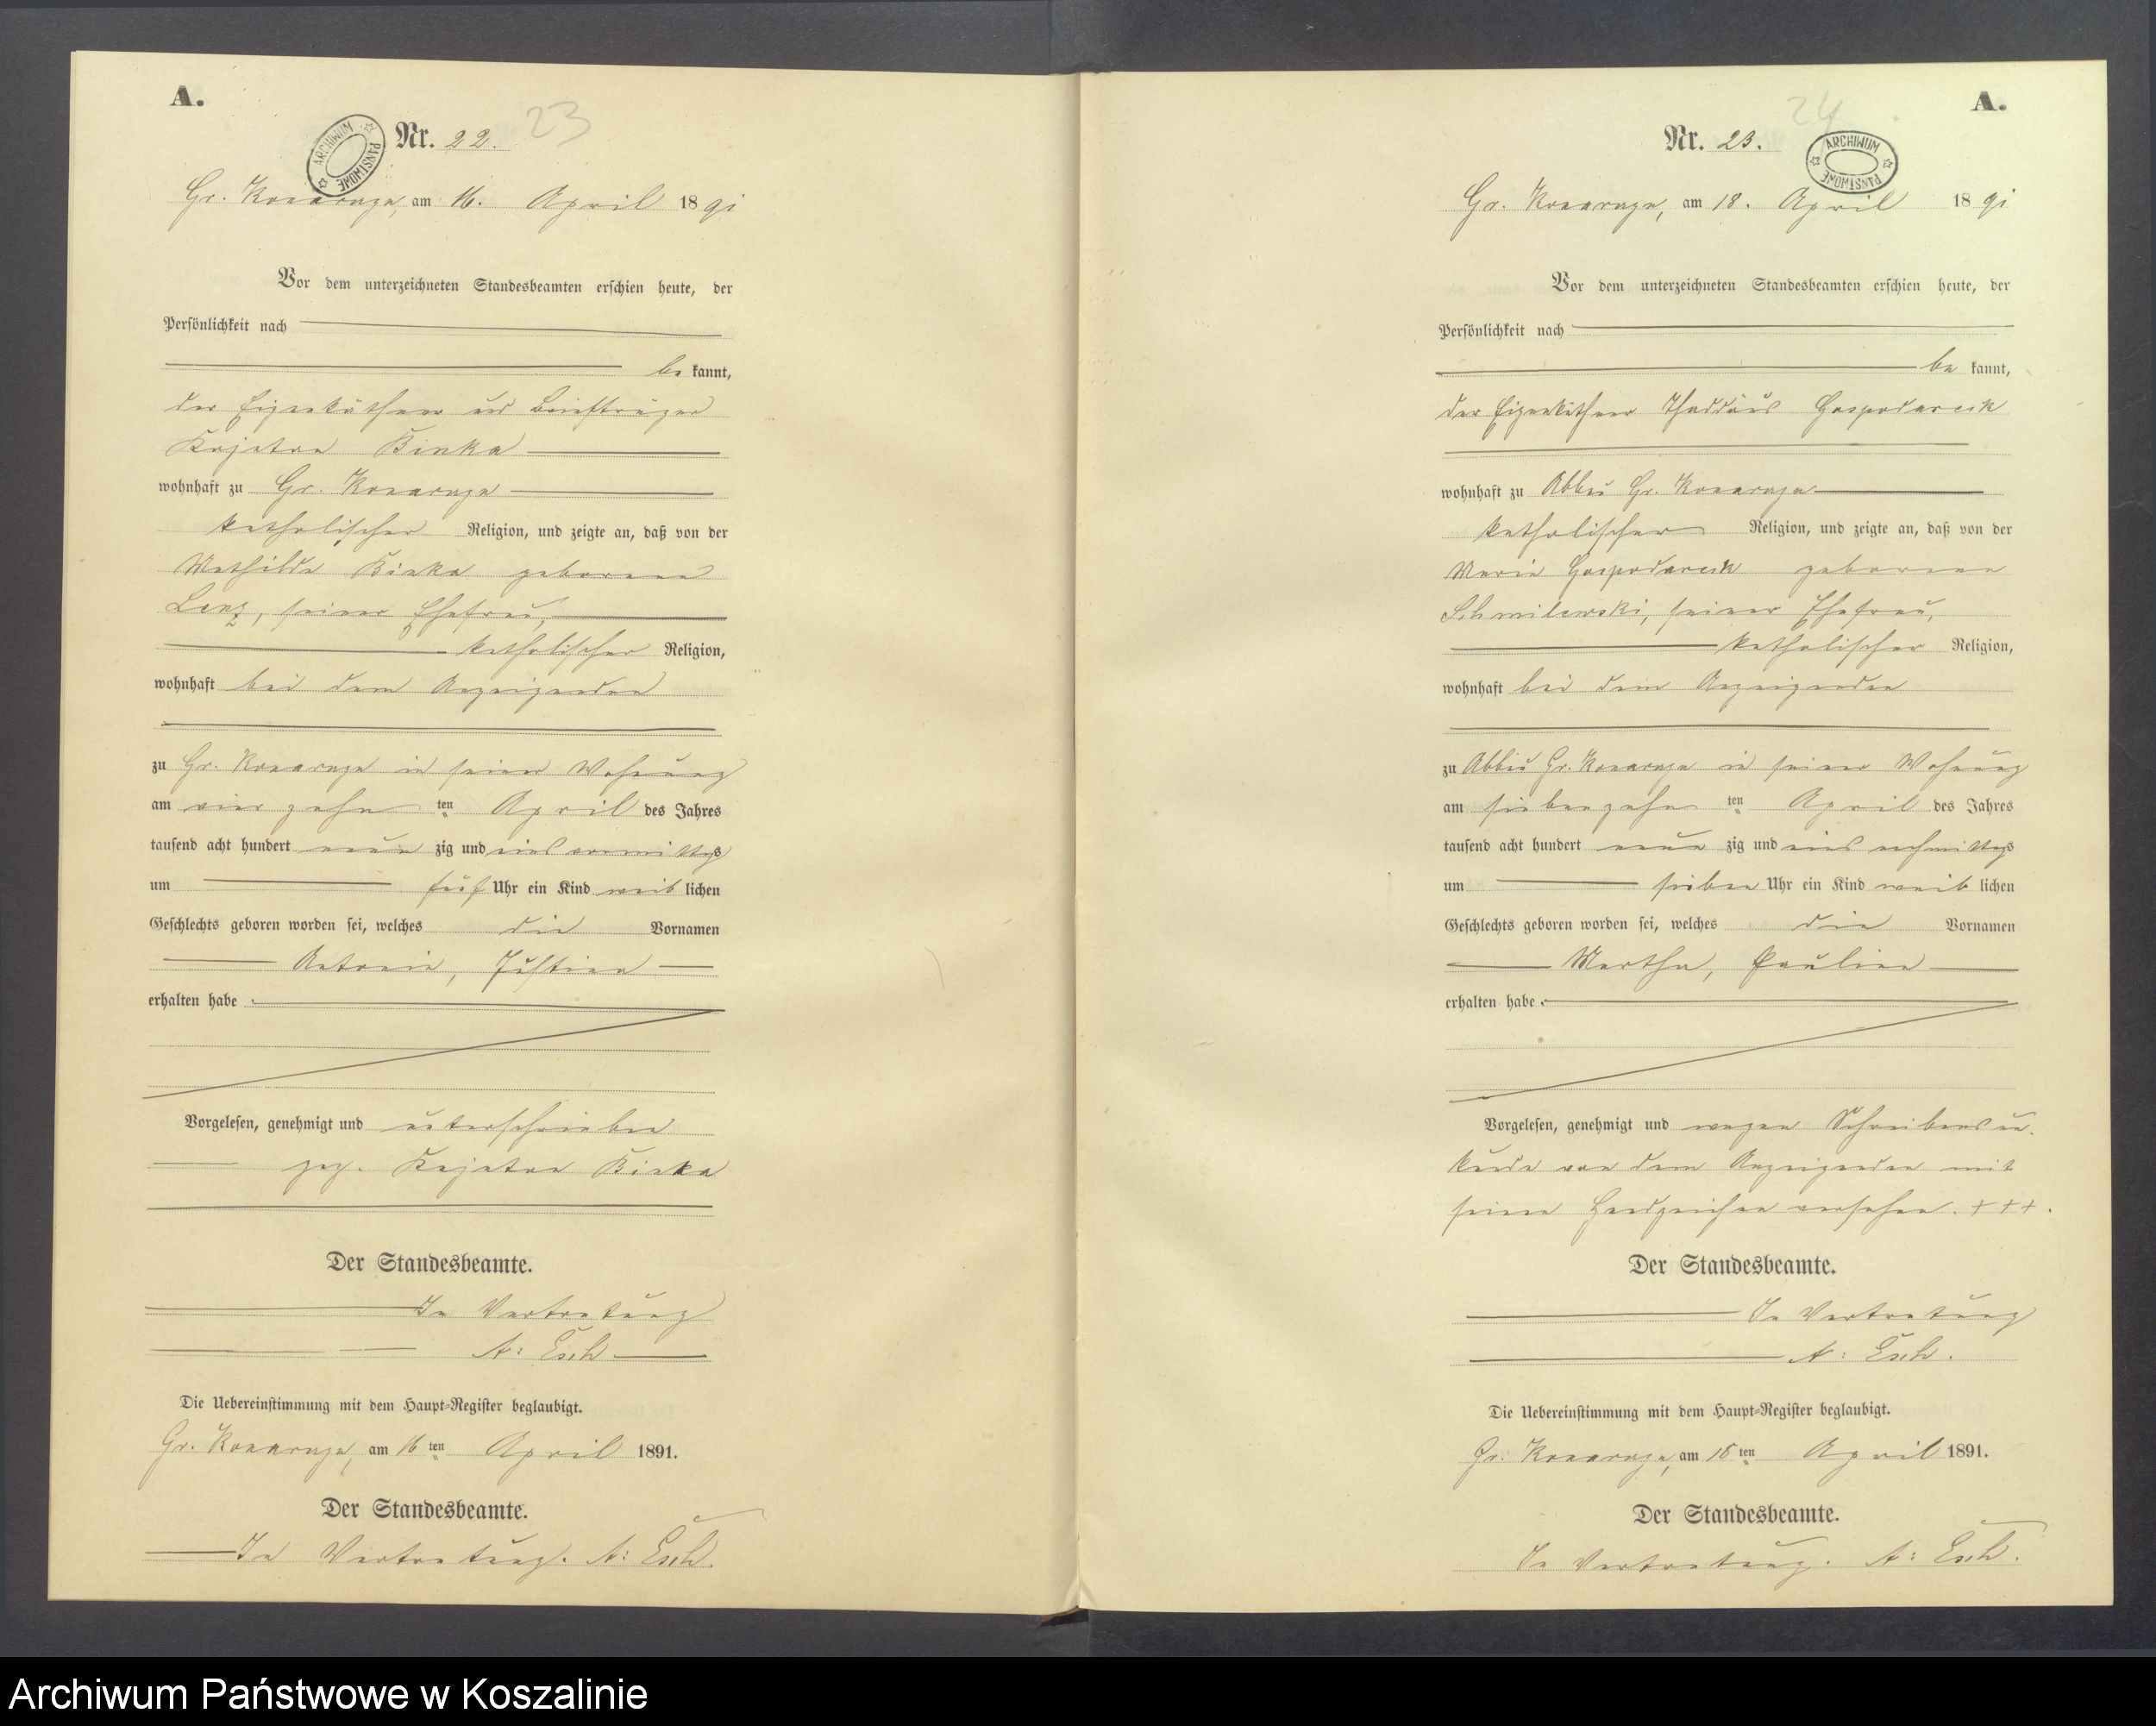 A.
Nr. 22.
23
ARCHIWUM PAŃSTWOWE
Gr. Konarczyn, am 16. April 1891
Vor dem unterzeichneten Standesbeamten erschien heute, der
Persönlichkeit nach
be kannt,
der Eigenkäthner und Briefträger
Kajetan Binka
wohnhaft zu Gr. Konarczyn
katholischer Religion, und zeigte an, daß von der
Mathilde Binka geborene
Lenz, seiner Ehefrau,
katholischer Religion,
wohnhaft bei dem Anzeigenden
zu Gr. Konarczyn in seiner Wohnung
am vier zehn ten April des Jahres
tausend acht hundert neun zig und eins vormittags
um fünf Uhr ein Kind weib lichen
Geschlechts geboren worden sei, welches die Vornamen
Antonie, Justine
erhalten habe
Vorgelesen, genehmigt und unterschrieben
gez. Kajetan Binka
Der Standesbeamte.
In Vertretung
A: Esch
Die Uebereinstimmung mit dem Haupt-Register beglaubigt.
Gr. Konarczyn, am 16 ten April 1891.
Der Standesbeamte.
In Vertretung. A: Esch.
A.
Nr. 23.
24
ARCHIWUM PAŃSTWOWE
Gr. Konarczyn, am 18. April 1891
Vor dem unterzeichneten Standesbeamten erschien heute, der
Persönlichkeit nach
be kannt,
der Eigenkäthner Thaddäus Gospodarek
wohnhaft zu Abbau Gr. Konarczyn
katholischer Religion, und zeigte an, daß von der
Marie Gospodarek geborene
Schmilewski, seiner Ehefrau,
katholischer Religion,
wohnhaft bei dem Anzeigenden
zu Abbau Gr. Konarczyn in seiner Wohnung
am sieben zehn ten April des Jahres
tausend acht hundert neun zig und eins nachmittags
um sieben Uhr ein Kind weib lichen
Geschlechts geboren worden sei, welches die Vornamen
Martha, Pauline
erhalten habe
Vorgelesen, genehmigt und wegen Schreibensun-
kunde von dem Anzeigenden mit
seinen Handzeichen versehen. +++.
Der Standesbeamte.
In Vertretung
A: Esch.
Die Uebereinstimmung mit dem Haupt-Register beglaubigt.
Gr. Konarczyn, am 18 ten April 1891.
Der Standesbeamte.
In Vertretung. A: Esch.
Archiwum Państwowe w Koszalinie